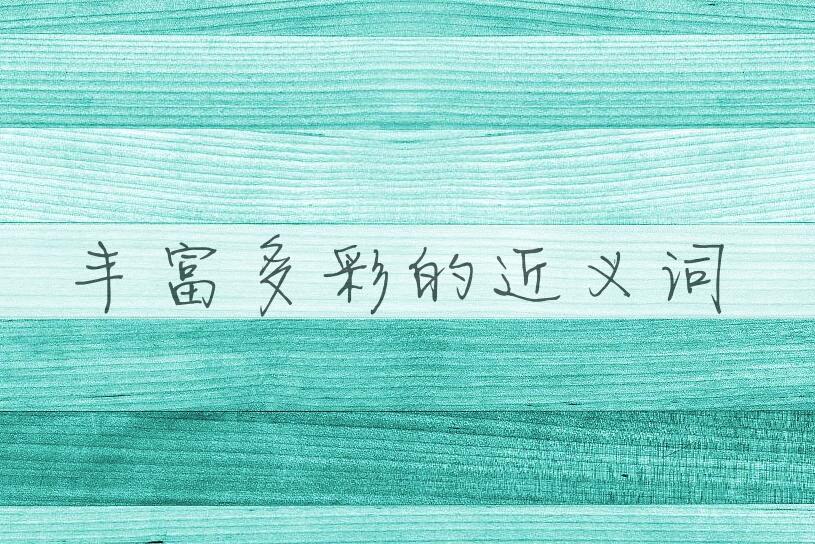 丰富多彩的近义词